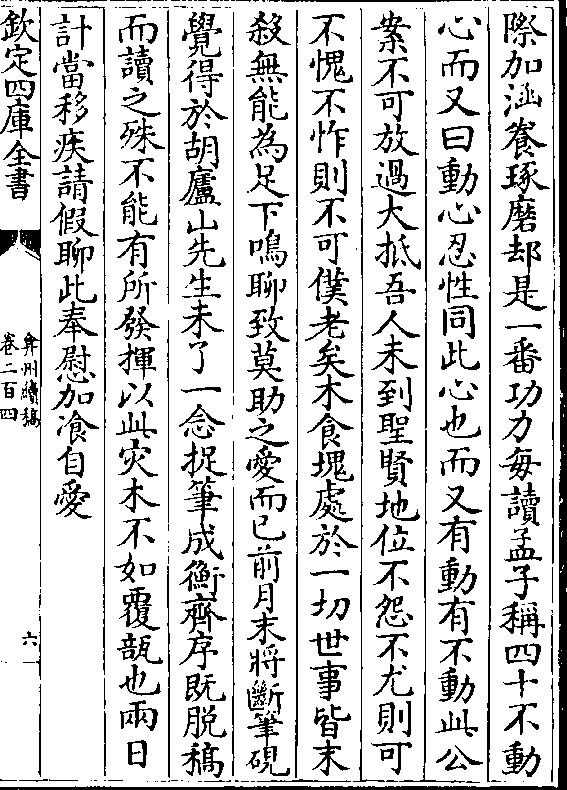 際加涵養琢磨却是一番功力每讀孟子稱四十不動
心而又曰動心忍性同此心也而又有動有不動此公
案不可放過大抵吾人未到聖賢地位不怨不尤則可
不愧不怍則不可僕老矣木食塊處於一切世事皆末
殺無能為足下鳴聊致莫助之愛而已前月末將斷筆硯
覺得於胡廬山先生未了一念捉筆成衡齊序既脫稿
而讀之殊不能有所發揮以此灾木不如覆瓿也兩日
計當移疾請假聊此奉慰加飡自愛
欽定四庫全書
弇州續稿
卷二百四
六